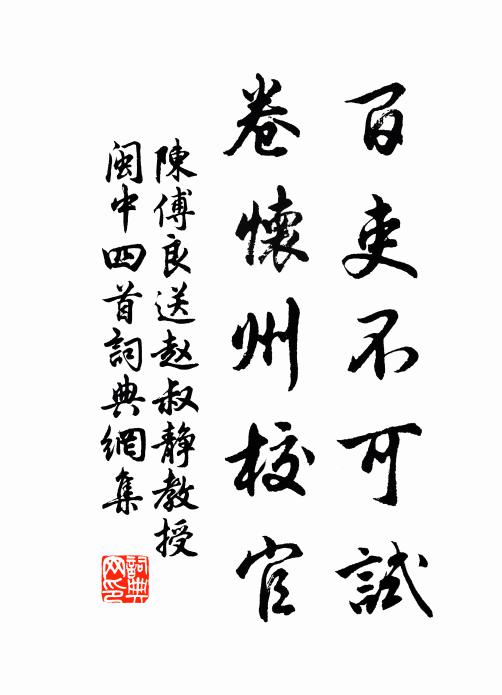 百吏不可試
卷懷州校官
陳傅良送赵叔靜教授
閩中四首詞典網集
詞典
网印